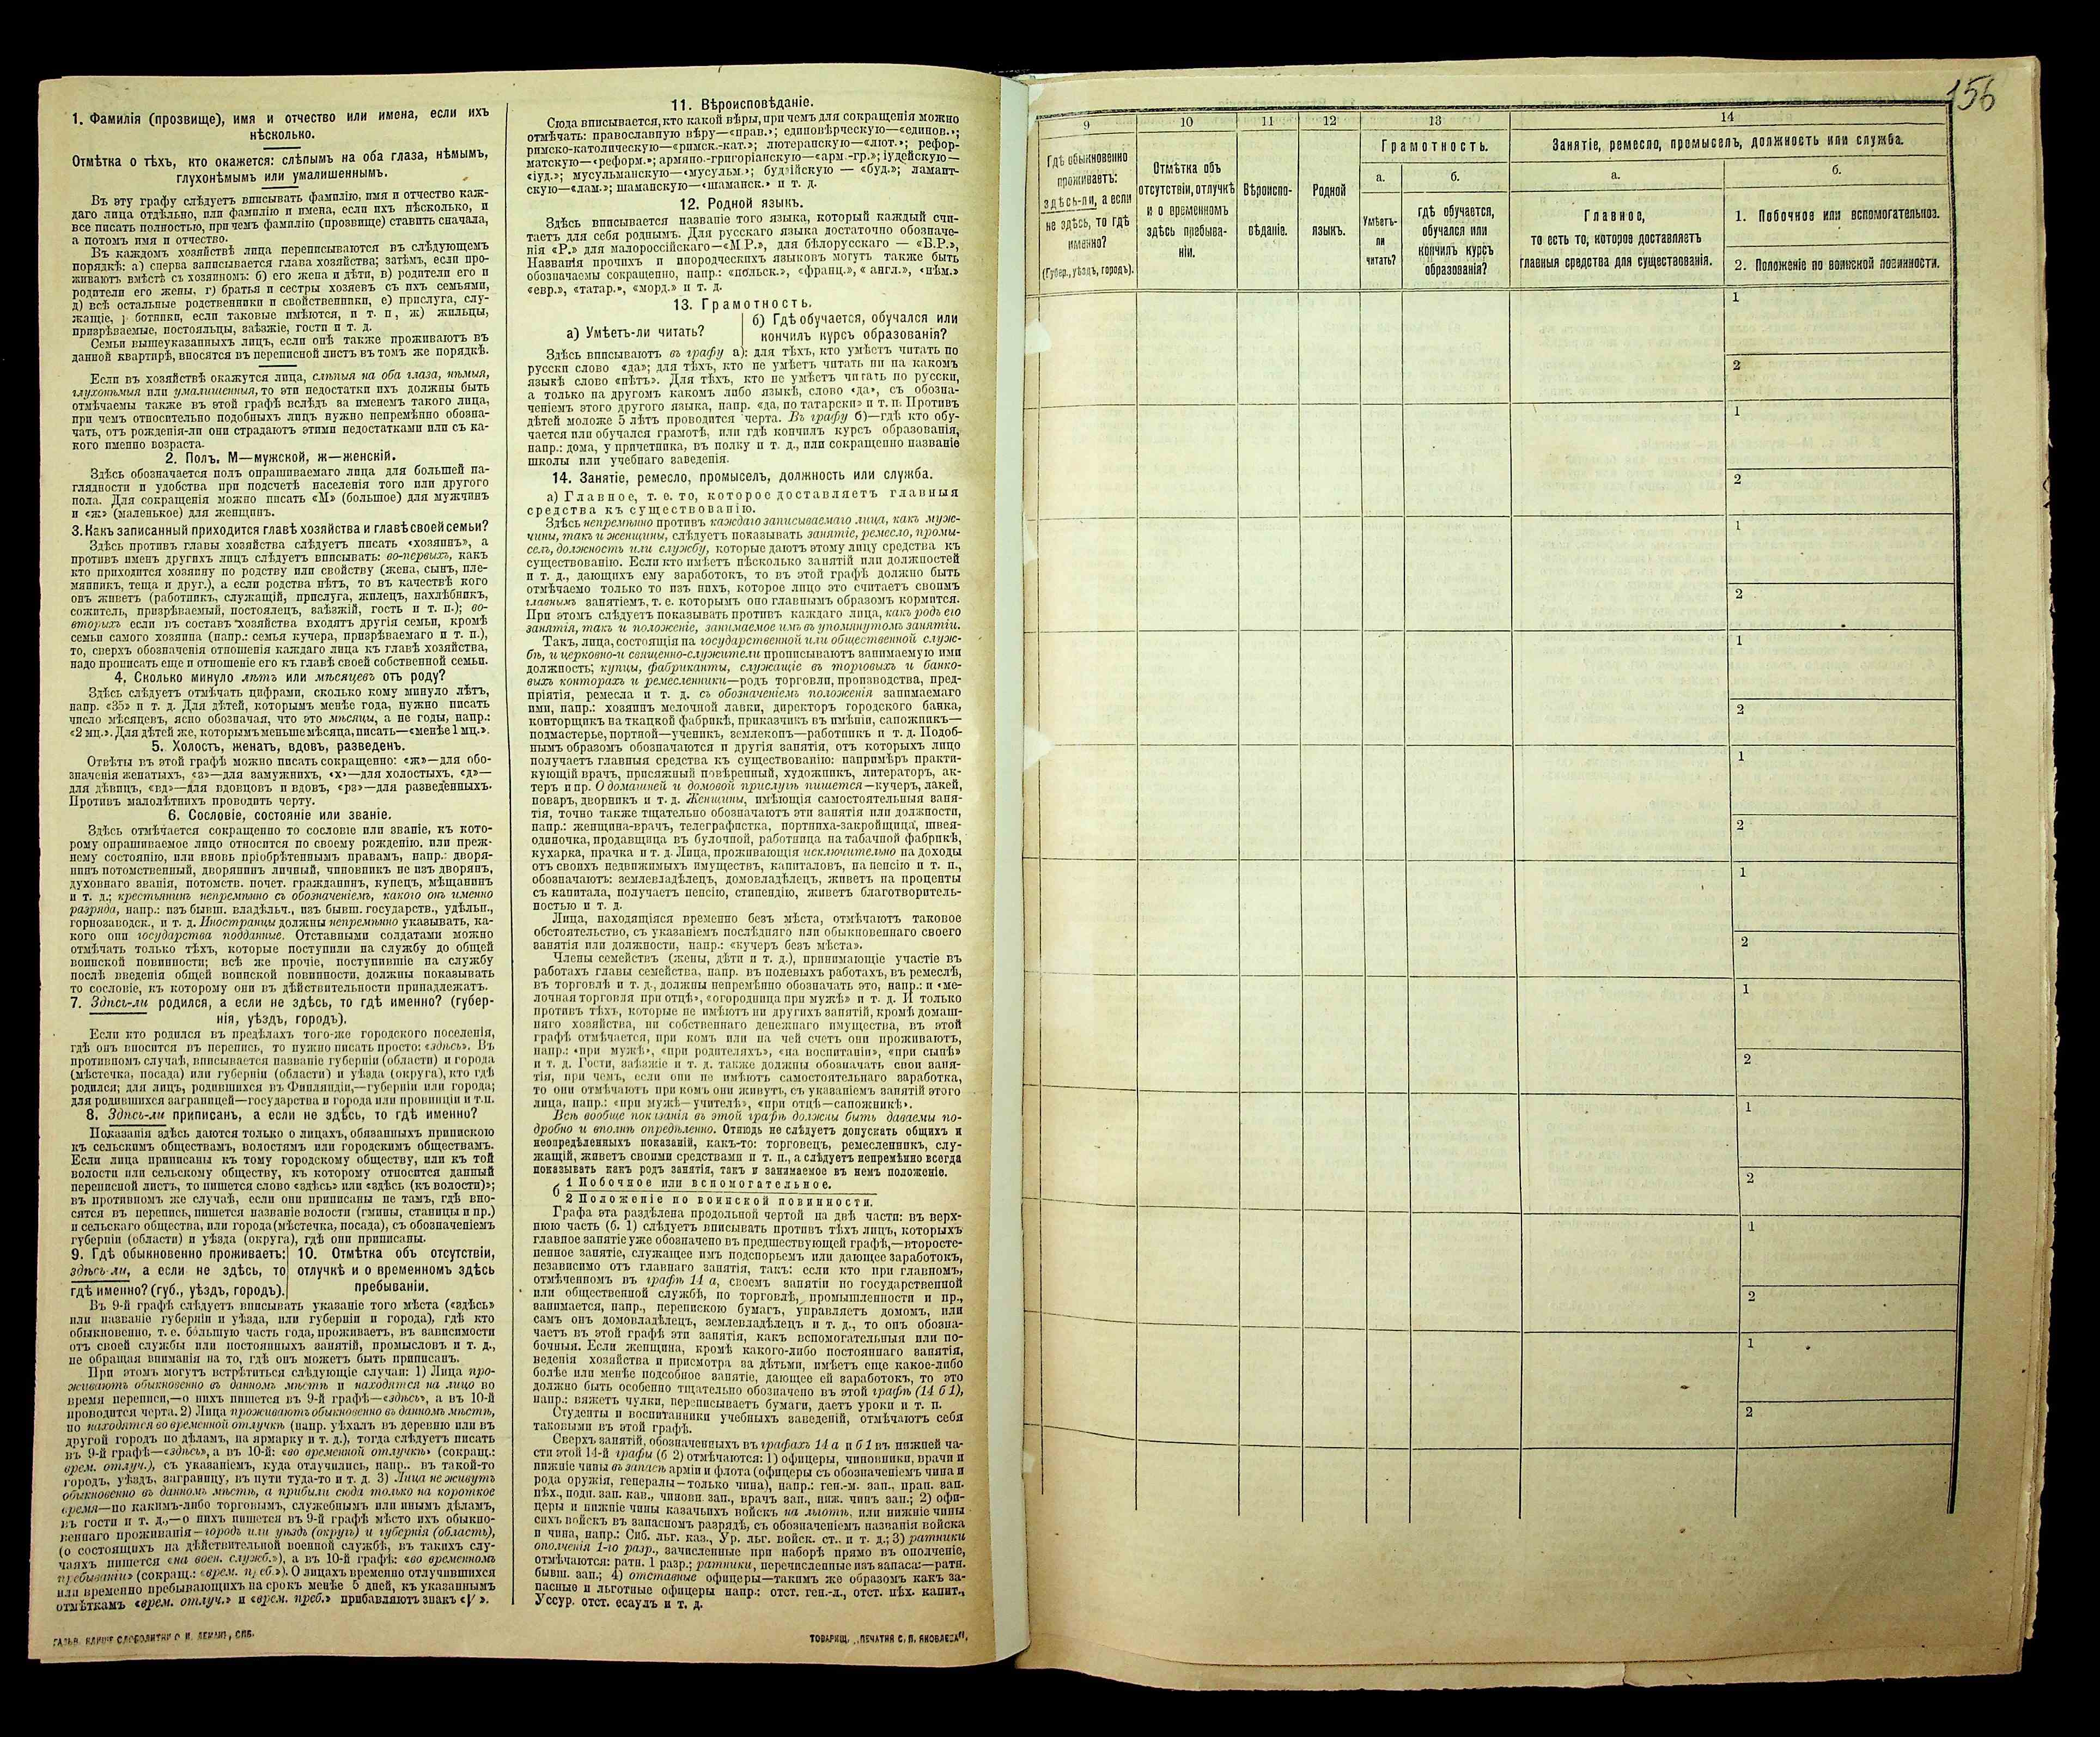 1. Фамилія (прозвище), имя и отчество или имена, если ихъ
нѣсколько.
Отмѣтка о тѣхъ, кто окажется: слѣпымъ на оба глаза, нѣмымъ,
глухонѣмымъ или умалишеннымъ.
Въ эту графу слѣдуетъ вписывать фамилію, имя и отчество каж-
даго лица отдѣльно, или фамилію и имена, если ихъ нѣсколько, и
все писать полностью, при чемъ фамилію (прозвище) ставить сначала,
а потомъ имя и отчество.
Въ каждомъ хозяйствѣ лица переписываются въ слѣдующемъ
порядкѣ: а) сперва записывается глава хозяйства; затѣмъ, если про-
живаютъ вмѣстѣ съ хозяиномъ: б) его жена и дѣти, в) родители его и
родители его жены, г) братья и сестры хозяевъ съ ихъ семьями,
д) всѣ остальные родственники и свойственники, е) прислуга, слу-
жащіе, р ботники, если таковые имѣются, и т. п, ж) жильцы,
призрѣваемые, постояльцы, заѣзжіе, гости и т. д.
Семьи вышеуказанныхъ лицъ, если онѣ также проживаютъ въ
данной квартирѣ, вносятся въ переписной листъ въ томъ же порядкѣ.
Если въ хозяйствѣ окажутся лица, слѣпыя на оба глаза, нѣмыя,
глухонѣмыя или умалишенныя, то эти недостатки ихъ должны быть
отмѣчаемы также въ этой графѣ вслѣдъ за именемъ такого лица,
при чемъ относительно подобныхъ лицъ нужно непремѣнно обозна-
чать, отъ рожденія-ли они страдаютъ этими недостатками или съ ка-
кого именно возраста.
2. Полъ, М—мужской, ж—женскій.
Здѣсь обозначается полъ опрашиваемаго лица для большей на-
глядности и удобства при подсчетѣ населенія того или другого
пола. Для сокращенія можно писать «М» (большое) для мужчинъ
и «ж» (маленькое) для женщинъ.
3. Какъ записанный приходится главѣ хозяйства и главѣ своей семьи?
Здѣсь противъ главы хозяйства слѣдуетъ писать «хозяинъ», а
противъ именъ другихъ лицъ слѣдуетъ вписывать: во-первыхъ, какъ
кто приходится хозяину по родству или свойству (жена, сынъ, пле-
мянникъ, теща и друг.), а если родства нѣтъ, то въ качествѣ кого
онъ живетъ (работникъ, служащій, прислуга, жилецъ, нахлѣбникъ,
сожитель, призрѣваемый, постоялецъ, заѣзжій, гость и т. п.); во-
вторыхъ если въ составъ хозяйства входятъ другія семьи, кромѣ
семьи самого хозяина (напр.: семья кучера, призрѣваемаго и т. п.),
то, сверхъ обозначенія отношенія каждаго лица къ главѣ хозяйства,
надо прописать еще и отношеніе его къ главѣ своей собственной семьи.
4, Сколько минуло лѣтъ или мѣсяцевъ отъ роду?
Здѣсь слѣдуетъ отмѣчать цифрами, сколько кому минуло лѣтъ,
напр. «35» и т. д. Для дѣтей, которымъ менѣе года, нужно писать
число мѣсяцевъ, ясно обозначая, что это мѣсяцы, а не годы, напр.:
«2 мц.». Для дѣтей же, которымъ меньше мѣсяца, писать—«менѣе 1 мц.».
5. Холостъ, женатъ, вдовъ, разведенъ.
Отвѣты въ этой графѣ можно писать сокращенно: «ж»—для обо-
значенія женатыхъ, «з»—для замужнихъ, «х»—для холостыхъ, «д»—
для дѣвицъ, «вд»—для вдовцовъ и вдовъ, «рз»—для разведенныхъ.
Противъ малолѣтнихъ проводить черту.
6. Сословіе, состояніе или званіе.
Здѣсь отмѣчается сокращенно то сословіе или званіе, къ кото-
рому опрашиваемое лицо относится по своему рожденію, или преж-
нему состоянію, или вновь пріобрѣтеннымъ правамъ, напр.: дворя-
нинъ потомственный, дворянинъ личный, чиновникъ не изъ дворянъ,
духовнаго званія, потомств. почет. гражданинъ, купецъ, мѣщанинъ
и т. д.; крестьянинъ непремѣнно съ обозначеніемъ, какого онъ именно
разряда, напр.: изъ бывш. владѣльч., изъ бывш. государств., удѣльн.,
горнозаводск., и т. д. Иностранцы должны непремѣнно указывать, ка-
кого они государства подданные. Отставными солдатами можно
отмѣчать только тѣхъ, которые поступили на службу до общей
воинской повинности; всѣ же прочіе, поступившіе на службу
послѣ введенія общей воинской повинности, должны показывать
то сословіе, къ которому они въ дѣйствительности принадлежатъ.
7. Здѣсь-ли родился, а если не здѣсь, то гдѣ именно? (губер-
нія, уѣздъ, городъ).
Если кто родился въ предѣлахъ того-же городского поселенія,
гдѣ онъ вносится въ перепись, то нужно писать просто: «здѣсь». Въ
противномъ случаѣ, вписывается названіе губерніи (области) и города
(мѣстечка, посада) или губерніи (области) и уѣзда (округа), кто гдѣ
родился; для лицъ, родившихся въ Финляндіи,—губерніи или города;
для родившихся заграницей—государства и города или провинціи и т.п.
8. Здѣсь-ли приписанъ, а если не здѣсь, то гдѣ именно?
Показанія здѣсь даются только о лицахъ, обязанныхъ припискою
къ сельскимъ обществамъ, волостямъ или городскимъ обществамъ.
Если лица приписаны къ тому городскому обществу, или къ той
волости или сельскому обществу, къ которому относится данный
переписной листъ, то пишется слово «здѣсь» или «здѣсь (къ волости)»;
въ противномъ же случаѣ, если они приписаны не тамъ, гдѣ вно-
сятся въ перепись, пишется названіе волости (гмины, станицы и пр.)
и сельскаго общества, или города (мѣстечка, посада), съ обозначеніемъ
губерніи (области) и уѣзда (округа), гдѣ они приписаны.
9. Гдѣ обыкновенно проживаетъ:
здѣсь-ли, а если не здѣсь, то
гдѣ именно? (губ., уѣздъ, городъ).
10. Отмѣтка объ отсутствіи,
отлучкѣ и о временномъ здѣсь
пребываніи.
Въ 9-й графѣ слѣдуетъ вписывать указаніе того мѣста («здѣсь»
или названіе губерніи и уѣзда, или губерніи и города), гдѣ кто
обыкновенно, т. е. большую часть года, проживаетъ, въ зависимости
отъ своей службы или постоянныхъ занятій, промысловъ и т. д.,
не обращая вниманія на то, гдѣ онъ можетъ быть приписанъ.
При этомъ могутъ встрѣтиться слѣдующіе случаи: 1) Лица про-
живаютъ обыкновенно въ данномъ мѣстѣ и находятся на лицо во
время переписи,—о нихъ пишется въ 9-й графѣ—«здѣсь», а въ 10-й
проводится черта. 2) Лица проживаютъ обыкновенно въ данномъ мѣстѣ,
но находятся во временной отлучкѣ (напр. уѣхалъ въ деревню или въ
другой городъ по дѣламъ, на ярмарку и т. д.), тогда слѣдуетъ писать
въ 9-й графѣ—«здѣсь», а въ 10-й: «во временной отлучкѣ» (сокращ.:
врем. отлуч.), съ указаніемъ, куда отлучились, напр.. въ такой-то
городъ, уѣздъ, заграницу, въ пути туда-то и т. д. 3) Лица не живутъ
обыкновенно въ данномъ мѣстѣ, а прибыли сюда только на короткое
время—по какимъ-либо торговымъ, служебнымъ или инымъ дѣламъ,
въ гости и т. д.,—о нихъ пишется въ 9-й графѣ мѣсто ихъ обыкно-
веннаго проживанія—городъ или уѣздъ (округъ) и губернія (область),
(о состоящихъ на дѣйствительной военной службѣ, въ такихъ слу-
чаяхъ пишется «на воен. службѣ.»), а въ 10-й графѣ: «во временномъ
пребываніи» (сокращ.: «врем. преб.»). О лицахъ временно отлучившихся
или временно пребывающихъ на срокъ менѣе 5 дней, къ указаннымъ
отмѣткамъ «врем. отлуч.» и «врем. преб.» прибавляютъ знакъ «V».
11. Вѣроисповѣданіе.
Сюда вписывается, кто какой вѣры, при чемъ для сокращенія можно
отмѣчать: православную вѣру—«прав.»; единовѣрческую—«единов.»;
римско-католическую—«римск.-кат.»; лютеранскую—«лют.»; рефор-
матскую—«реформ.»; армяно.-григоріанскую—«арм.-гр.»; іудейскую—
«іуд.»; мусульманскую—«мусульм.»; буддійскую — «буд.»; ламаит-
скую—«лам.»; шаманскую—«шаманск.» и т. д.
12. Родной языкъ.
Здѣсь вписывается названіе того языка, который каждый счи-
таетъ для себя роднымъ. Для русскаго языка достаточно обозначе-
нія «Р.» для малороссійскаго—«М.Р.», для бѣлорусскаго — «Б.Р.»,
Названія прочихъ и инородческихъ языковъ могутъ также быть
обозначаемы сокращенно, напр.: «польск.», «франц.», « англ.», «нѣм.»
«евр.», «татар.», «морд.» и т. д.
13. Грамотность.
а) Умѣетъ-ли читать?
б) Гдѣ обучается, обучался или
кончилъ курсъ образованія?
Здѣсь вписываютъ въ графу а): для тѣхъ, кто умѣетъ читать по
русски слово «да»; для тѣхъ, кто не умѣетъ читать ни на какомъ
языкѣ слово «нѣтъ». Для тѣхъ, кто не умѣетъ читать по русски,
а только на другомъ какомъ либо языкѣ, слово «да», съ обозна-
ченіемъ этого другого языка, напр. «да, по татарски» и т. п. Противъ
дѣтей моложе 5 лѣтъ проводится черта. Въ графу б)—гдѣ кто обу-
чается или обучался грамотѣ, или гдѣ кончилъ курсъ образованія,
напр.: дома, у причетника, въ полку и т. д., или сокращенно названіе
школы или учебнаго заведенія.
14. Занятіе, ремесло, промыселъ, должность или служба.
а) Главное, т. е. то, которое доставляетъ главныя
средства къ существованію.
Здѣсь непремѣнно противъ каждаго записываемаго лица, какъ муж-
чины, такъ и женщины, слѣдуетъ показывать занятіе, ремесло, промы-
селъ, должность или службу, которые даютъ этому лицу средства къ
существованію. Если кто имѣетъ нѣсколько занятій или должностей
и т. д., дающихъ ему заработокъ, то въ этой графѣ должно быть
отмѣчаемо только то изъ нихъ, которое лицо это считаетъ своимъ
главнымъ занятіемъ, т. е. которымъ оно главнымъ образомъ кормится.
При этомъ слѣдуетъ показывать противъ каждаго лица, какъ родъ его
занятія, такъ и положеніе, занимаемое имъ въ упомянутомъ занятіи.
Такъ, лица, состоящія на государственной или общественной служ-
бѣ, и церковно-и священно-служители прописываютъ занимаемую ими
должность; купцы, фабриканты, служащіе въ торговыхъ и банко-
выхъ конторахъ и ремесленники—родъ торговли, производства, пред-
пріятія, ремесла и т. д. съ обозначеніемъ положенія занимаемаго
ими, напр.: хозяинъ мелочной лавки, директоръ городского банка,
конторщикъ на ткацкой фабрикѣ, приказчикъ въ имѣніи, сапожникъ—
подмастерье, портной—ученикъ, землекопъ—работникъ и т. д. Подоб-
нымъ образомъ обозначаются и другія занятія, отъ которыхъ лицо
получаетъ главныя средства къ существованію: напримѣръ практи-
кующій врачъ, присяжный повѣренный, художникъ, литераторъ, ак-
теръ и пр. О домашней и домовой прислугѣ пишется—кучеръ, лакей,
поваръ, дворникъ и т. д. Женщины, имѣющія самостоятельныя заня-
тія, точно также тщательно обозначаютъ эти занятія или должности,
напр.: женщина-врачъ, телеграфистка, портниха-закройщица, швея-
одиночка, продавщица въ булочной, работница на табачной фабрикѣ,
кухарка, прачка и т. д. Лица, проживающія исключительно на доходы
отъ своихъ недвижимыхъ имуществъ, капиталовъ, на пенсію и т. п.,
обозначаютъ: землевладѣлецъ, домовладѣлецъ, живетъ на проценты
съ капитала, получаетъ пенсію, стипендію, живетъ благотворитель-
ностью и т. д.
Лица, находящіяся временно безъ мѣста, отмѣчаютъ таковое
обстоятельство, съ указаніемъ послѣдняго или обыкновеннаго своего
занятія или должности, напр.: «кучеръ безъ мѣста».
Члены семействъ (жены, дѣти и т. д.), принимающіе участіе въ
работахъ главы семейства, напр. въ полевыхъ работахъ, въ ремеслѣ,
въ торговлѣ и т. д., должны непремѣнно обозначать это, напр.: и «ме-
лочная торговля при отцѣ», «огородница при мужѣ» и т. д. И только
противъ тѣхъ, которые не имѣютъ ни другихъ занятій, кромѣ домаш-
няго хозяйства, ни собственнаго денежнаго имущества, въ этой
графѣ отмѣчается, при комъ или на чей счетъ они проживаютъ,
напр.: «при мужѣ», «при родителяхъ», «на воспитаніи», «при сынѣ»
и т. д. Гости, заѣзжіе и т. д. также должны обозначать свои заня-
тія, при чемъ, если они не имѣютъ самостоятельнаго заработка,
то они отмѣчаютъ при комъ они живутъ, съ указаніемъ занятій этого
лица, напр.: «при мужѣ—учителѣ», «при отцѣ—сапожникѣ».
Всѣ вообще показанія въ этой графѣ должны быть даваемы по-
дробно и вполнѣ опредѣленно. Отнюдь не слѣдуетъ допускать общихъ и
неопредѣленныхъ показаній, какъ-то: торговецъ, ремесленникъ, слу-
жащій, живетъ своими средствами и т. п., а слѣдуетъ непремѣнно всегда
показывать какъ родъ занятія, такъ и занимаемое въ немъ положеніе.
б 1 Побочное или вспомогательное.
2 Положеніе по воинской повинности.
Графа эта раздѣлена продольной чертой на двѣ части: въ верх-
нюю часть (б. 1) слѣдуетъ вписывать противъ тѣхъ лицъ, которыхъ
главное занятіе уже обозначено въ предшествующей графѣ,—второсте-
пенное занятіе, служащее имъ подспорьемъ или дающее заработокъ,
независимо отъ главнаго занятія, такъ: если кто при главномъ,
отмѣченномъ въ графѣ 14 а, своемъ занятіи по государственной
или общественной службѣ, по торговлѣ, промышленности и пр.,
занимается, напр., перепискою бумагъ, управляетъ домомъ, или
самъ онъ домовладѣлецъ, землевладѣлецъ и т. д., то онъ обозна-
чаетъ въ этой графѣ эти занятія, какъ вспомогательныя или по-
бочныя. Если женщина, кромѣ какого-либо постояннаго занятія,
веденія хозяйства и присмотра за дѣтьми, имѣетъ еще какое-либо
болѣе или менѣе подсобное занятіе, дающее ей заработокъ, то это
должно быть особенно тщательно обозначено въ этой графѣ (14 б 1),
напр.: вяжетъ чулки, переписываетъ бумаги, даетъ уроки и т. п.
Студенты и воспитанники учебныхъ заведеній, отмѣчаютъ себя
таковыми въ этой графѣ.
Сверхъ занятій, обозначенныхъ въ графахъ 14 а и б 1 въ нижней ча-
сти этой 14-й графы (б 2) отмѣчаются: 1) офицеры, чиновники, врачи и
нижніе чины въ запасѣ арміи и флота (офицеры съ обозначеніемъ чина и
рода оружія, генералы—только чина), напр.: ген.-м. зап., прап. зап.
пѣх., подп. зап. кав., чиновн. зап., врачъ зап., ниж. чинъ зап.; 2) офи-
церы и нижніе чины казачьихъ войскъ на льготѣ, или нижніе чины
сихъ войскъ въ запасномъ разрядѣ, съ обозначеніемъ названія войска
и чина, напр.: Сиб. льг. каз., Ур. льг. войск. ст., и т. д.; 3) ратники
ополченія 1-го разр., зачисленные при наборѣ прямо въ ополченіе,
отмѣчаются: ратн. 1 разр.; ратники, перечисленные изъ запаса:—ратн.
бывш. зап.; 4) отставные офицеры—такимъ же образомъ какъ за-
пасные и льготные офицеры напр.: отст. ген.-л., отст. пѣх. капит.,
Уссур. отст. есаулъ и т. д.
ТОВАРИЩ. „ПЕЧАТНЯ С. П. ЯКОВЛЕВА“,
156
9
10
11
12
13
14
Гдѣ обыкновенно
проживаетъ:
здѣсь-ли, а если
не здѣсь, то гдѣ
именно?
(Губер., уѣздъ, городъ).
Отмѣтка объ
отсутствіи, отлучкѣ
и о временномъ
здѣсь пребыва-
ніи.
Вѣроиспо-
вѣданіе.
Родной
языкъ.
Грамотность.
а.
Умѣетъ-
ли
читать?
б.
гдѣ обучается,
обучался или
кончилъ курсъ
образованія?
Занятіе, ремесло, промыселъ, должность или служба.
а.
Главное,
то есть то, которое доставляетъ
главныя средства для существованія.
б.
1. Побочное или вспомогательное.
2. Положеніе по воинской повинности.
1
2
1
2
1
2
1
2
1
2
1
2
1
2
1
2
1
2
1
2